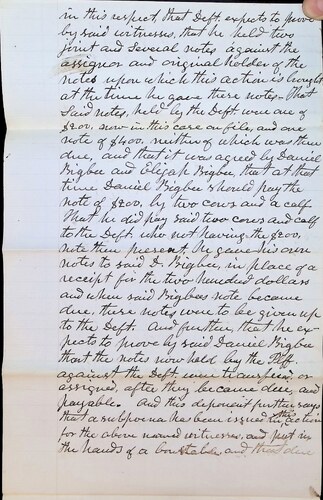 in this respect, that Deft. expects to prove
by said witnesses, that he held two
joint and several notes against the
assignor and original holder of the
notes upon which this action is brought
at the time he gave these notes. That
said notes, held by the Deft. were one of
$200. now in this case on file, and one
note of $400. neither of which was then
due, and that it was agreed by Daniel
Bigbee and Elijah Bigbee, that at that
time Daniel Bigbee should pay the
note of $200, by two cows and a calf
That he did pay said two cows and calf
to the Deft. who not having the $200,
note then present, he gave his own
notes to said D. Bigbee, in place of a
receipt for the two hundred dollars
and when said Bigbees note became
due, these notes were to be given up
to the Deft. And further, that he ex-
pects to prove by said Daniel Bigbee
that the notes now held by the Plff.
against the Deft. were transferred or
assigned, after they became due, and
payable. And this deponent further says
that a subpoena has been issued in this action
for the above named witnesses, and put in
the hands of a constable, and